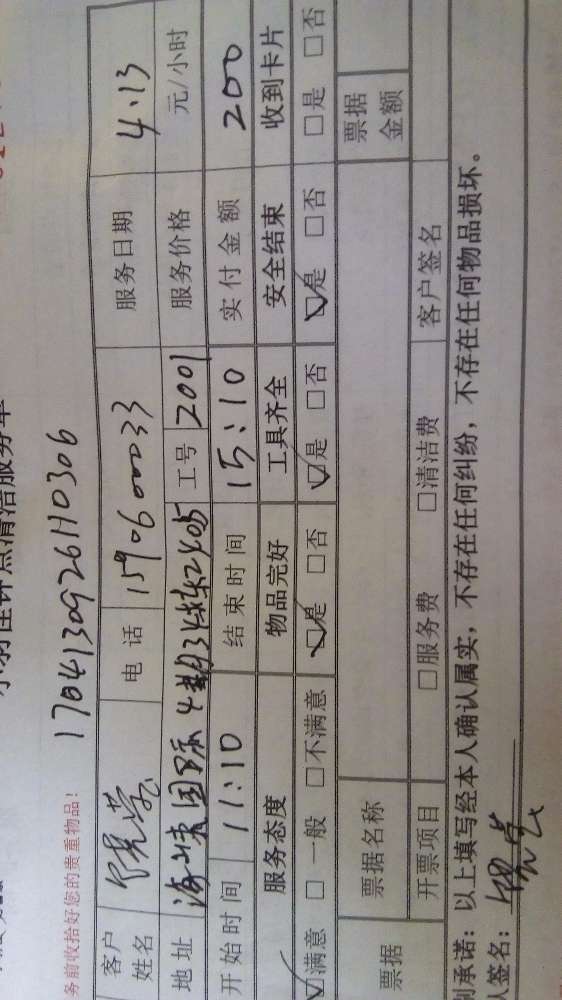 务前收拾好您的贵重物品！
1704130926110306
客户姓名 电话 15906000033 服务日期 4.13
地址 海峡国际4 2405 工号 2001 服务价格 元/小时
开始时间 11:10 结束时间 15:10 实付金额 200
服务态度 物品完好 工具齐全 安全结束 收到卡片
☑满意 □一般 □不满意 ☑是 □否 ☑是 □否 ☑是 □否 □是 □否
票据 票据名称 票据金额
开票项目 □服务费 □清洁费 客户签名
承诺：以上填写经本人确认属实，不存在任何纠纷，不存在任何物品损坏。
签名：